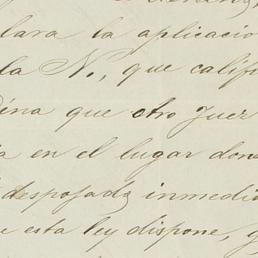 lara la aplicacio
la N., que califi
éna que otro Juez
a en el lugar don
despojada inmedia
e esta ley dispone, y